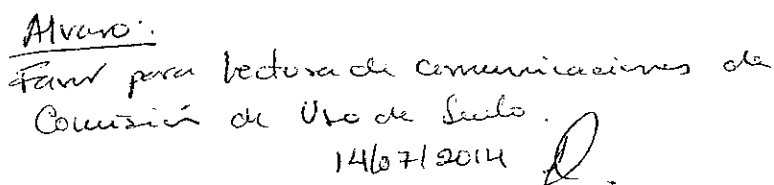 Alvaro:
Favor para lectura de comunicaciones de
Comisión de Uso de Suelo.
14/07/2014